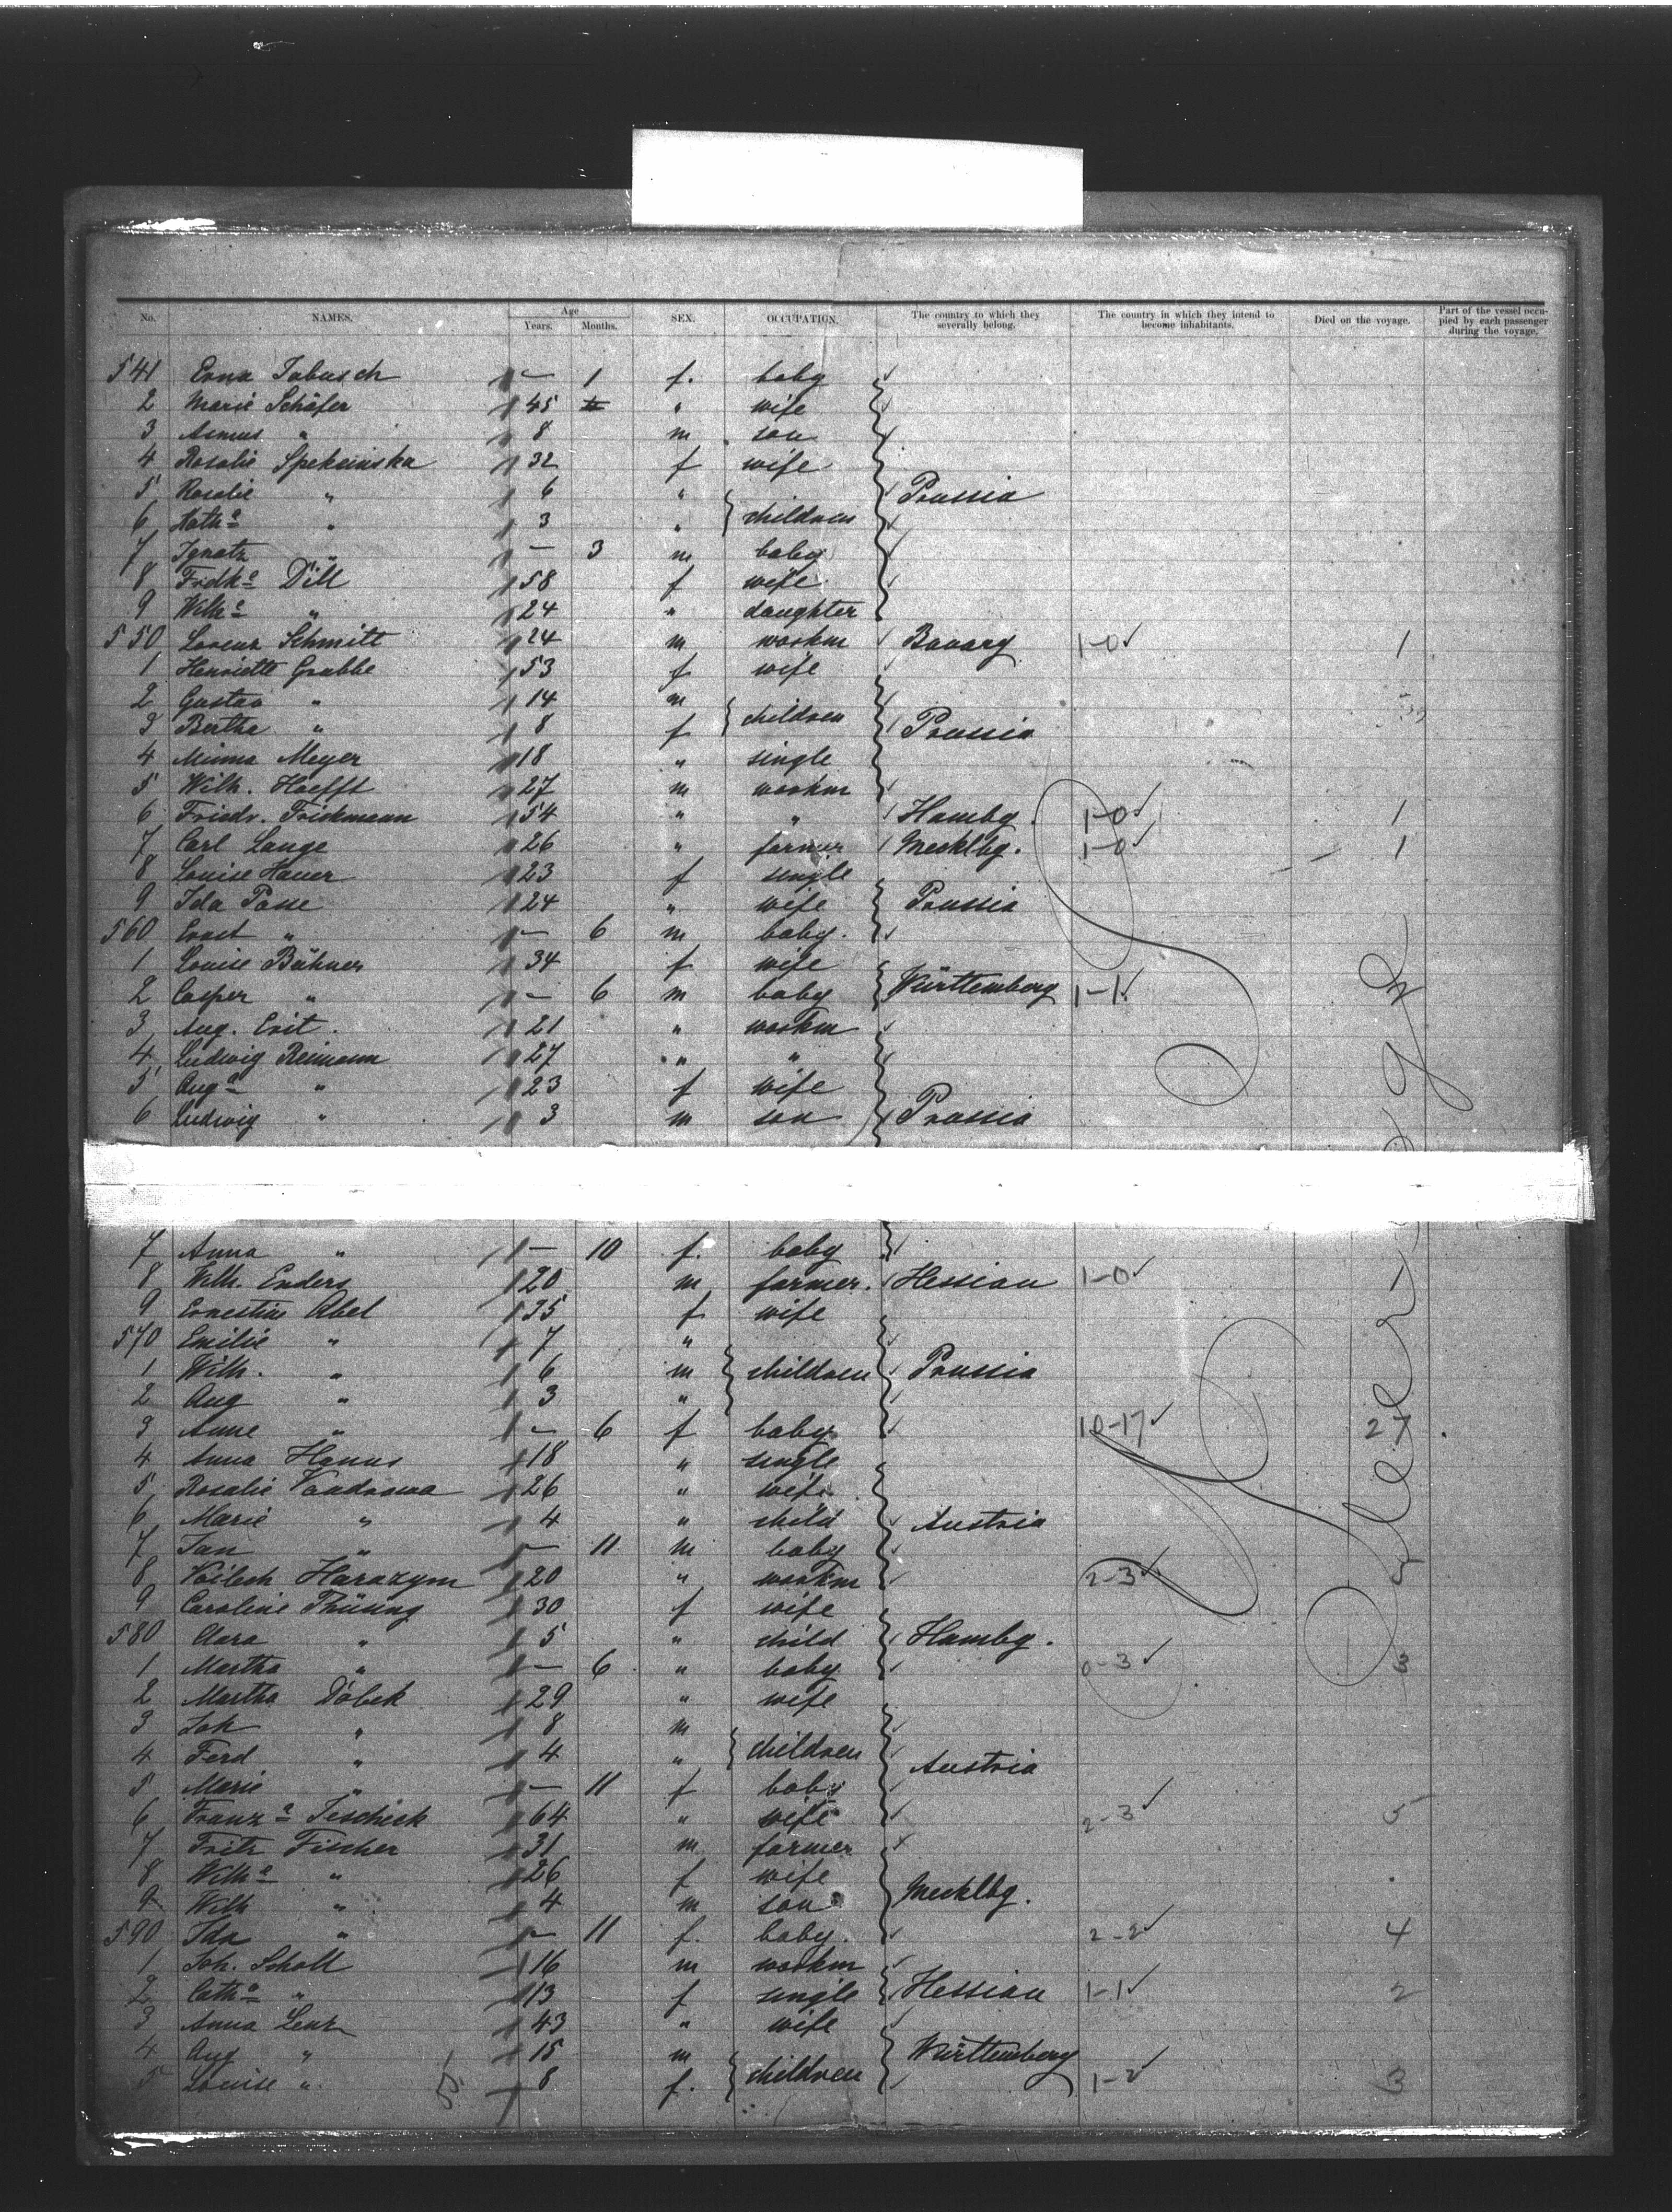 No. NAMES. Age Years. Months. SEX. OCCUPATION. The country to which they severally belong. The country in which they intend to become inhabitants. Died on the voyage. Part of the vessel occupied by each passenger during the voyage.
541 Erna Tabusch — 1 f. baby
2 Marie Schäfer 45 " wife
3 Asmus " 8 m son
4 Rosalie Spekcinska 32 f wife
5 Rosalie " 6 " Prussia
6 Kath a " 3 " children
7 Ignatz " — 3 m baby
8 Frdk e Dill 58 f wife
9 Wilh e " 24 " daughter
550 Lorenz Schmitt 24 m workm Bavary 1-0 1
1 Henriette Grabbe 53 f wife
2 Gustav " 14 m children
3 Bertha " 8 f Prussia
4 Minna Meyer 18 " single
5 Wilh. Hoefft 27 m workm
6 Friedr. Frickmann 54 " " Hambg. 1-0 1
7 Carl Lange 26 " farmer Mecklbg. 1-0 — 1
8 Louise Hauer 23 f single
9 Ida Posse 24 " wife Prussia
560 Ernst " — 6 m baby.
1 Louise Bühner 34 f wife
2 Casper " — 6 m baby Württemberg 1-1 2
3 Aug. Erit. 21 " workm
4 Ludwig Reimann 27 " "
5 Aug a " 23 f wife
6 Ludwig " 3 m son Prussia
7 Anna " — 10 f. baby
8 Wilh. Enders 20 m farmer. Hessian 1-0
9 Ernestine Abel 35 f wife
570 Emilie " 7 "
1 Wilh. " 6 m children Prussia
2 Aug " 3 "
3 Anne " — 6 f baby 10-17 27
4 Anna Hanus 18 " single
5 Rosalie Vondrowa 26 " wife
6 Marie " 4 " child Austria
7 Jan " — 11 m baby
8 Voitech Harazym 20 " workm 2-3
9 Caroline Thüsing 30 f wife
580 Clara " 5 " child Hambg.
1 Martha " — 6 " baby 0-3 3
2 Martha Dobek 29 " wife
3 Joh " 8 m
4 Ferd " 4 " children Austria
5 Marie " — 11 f baby
6 Franz a Teschick 64 " wife 2-3 5
7 Fritz Fischer 31 m farmer
8 Wilh e " 26 f wife
9 Wilh " 4 m son Mecklbg.
590 Ida " — 11 f. baby. 2-2 4
1 Joh. Scholl 16 m workm
2 Cath a " 13 f single Hessian 1-1 2
3 Anna Lenz 43 " wife
4 Aug " 15 m Württemberg
5 Louise " 8 f. children 1-2 3